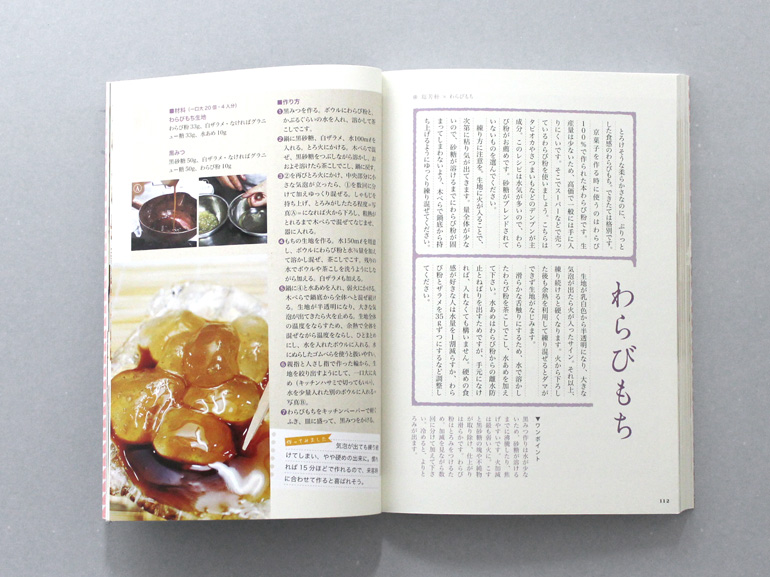 ■材料(一口大20個・4人分)
わらびもち生地
わらび粉 33g、白ザラメ・なければグラニ
ュー糖 33g、水あめ 10g
黒みつ
黒砂糖 50g、白ザラメ・なければグラニ
ュー糖 50g、わらび粉 10g
A
■作り方
❶黒みつを作る。ボウルにわらび粉と、
かぶるぐらいの水を入れ、溶かして茶
こしでこす。
❷鍋に黒砂糖、白ザラメ、水100㎖を入
れ、とろ火にかける。木べらで混
ぜ、黒砂糖をつぶしながら溶かし、お
およそ溶けたら茶こしでこし、鍋に戻す。
❸②を再びとろ火にかけ、中央部分に小
さな気泡が立ったら、①を数回に分
けて加えゆっくり混ぜる。しゃもじを
持ち上げ、とろみがしたたる程度=写
真Ⓐ=になれば火から下ろし、粗熱が
とれるまで木べらで混ぜてなじませ、
器に入れる。
❹もちの生地を作る。水150㎖を用意
し、ボウルにわらび粉と水⅓量を加え
て溶かし混ぜ、茶こしでこす。残りの
水でボウルや茶こしを洗うようにしな
がら加える。白ザラメも加える。
❺鍋に④と水あめを入れ、弱火にかける。
木べらで鍋底から全体へと混ぜ続け
る。生地が半透明になり、大きな気
泡が出てきたら火を止める。生地全体
の温度をならすため、余熱で全体を
混ぜながら温度をならし、ひとまとめ
にし、水を入れたボウルに入れる。水
にぬらしたゴムべらを使うと扱いやすい。
❻親指と人さし指で作った輪から、生
地を絞り出すようにして、一口大に丸
め(キッチンハサミで切ってもいい)、
水を少量入れた別のボウルに入れる=
写真Ⓑ。
❼わらびもちをキッチンペーパーで軽く
ふき、皿に盛って、黒みつをかける。
作ってみました
気泡が出ても練り続
けてしまい、やや硬めの出来に。慣れ
れば15分ほどで作れるので、来客時
に合わせて作ると喜ばれそう。
わらびもち
とろけそうな柔らかさなのに、ぷりっと
した食感のわらびもち。できたては格別です。
京菓子を作る時に使うのはわらび
100%で作られた本わらび粉です。生
産量は少ないため、高価で一般には手に入
りにくいです。そこでスーパーなどで売っ
ているわらび粉を使いましょう。こちらは
タピオカやさつまいもなどのデンプンが主
成分。このレシピは水気が多いので、わら
び粉がお薦めです。砂糖がブレンドされて
いないものを選んでください。
練り方に注意を。生地に火が入ることで、
次第に粘り気が出てきます。量全体が少な
いので、砂糖が溶けるまでにわらび粉が固
まってしまわないよう、木べらで鍋底から持
ち上げるようにゆっくり練り混ぜてください。
生地が乳白色から半透明になり、大きな
気泡が出たら火が入ったサイン。それ以上、
練り続けると硬くなります。火から下ろし
た後も余熱を利用して練り混ぜるとダマが
できず生地がなじみます。
滑らかな舌触りにするため、水で溶かし
たわらび粉を茶こしでこし、水あめを加え
て下さい。水あめはわらび粉からの離水防
止とねばりを出すためですが、手元になけ
れば、入れなくても構いません。硬めの食
感が好きな人は水量を1割減らすか、わら
び粉とザラメを35gずつにするなど調整し
てください。
▼ワンポイント
黒みつ作りは水が少な
いため、砂糖が溶ける
までに沸騰したり、焦
げやすいです。火加減
は最も弱い火に。こす
と黒砂糖の塊や不純物
が取り除け、仕上がり
は滑らかです。わらび
粉はとろみをつけるた
め。加減を見ながら数
回に分けて加えて下さ
い。冷めると、よりと
ろみが出ます。
112